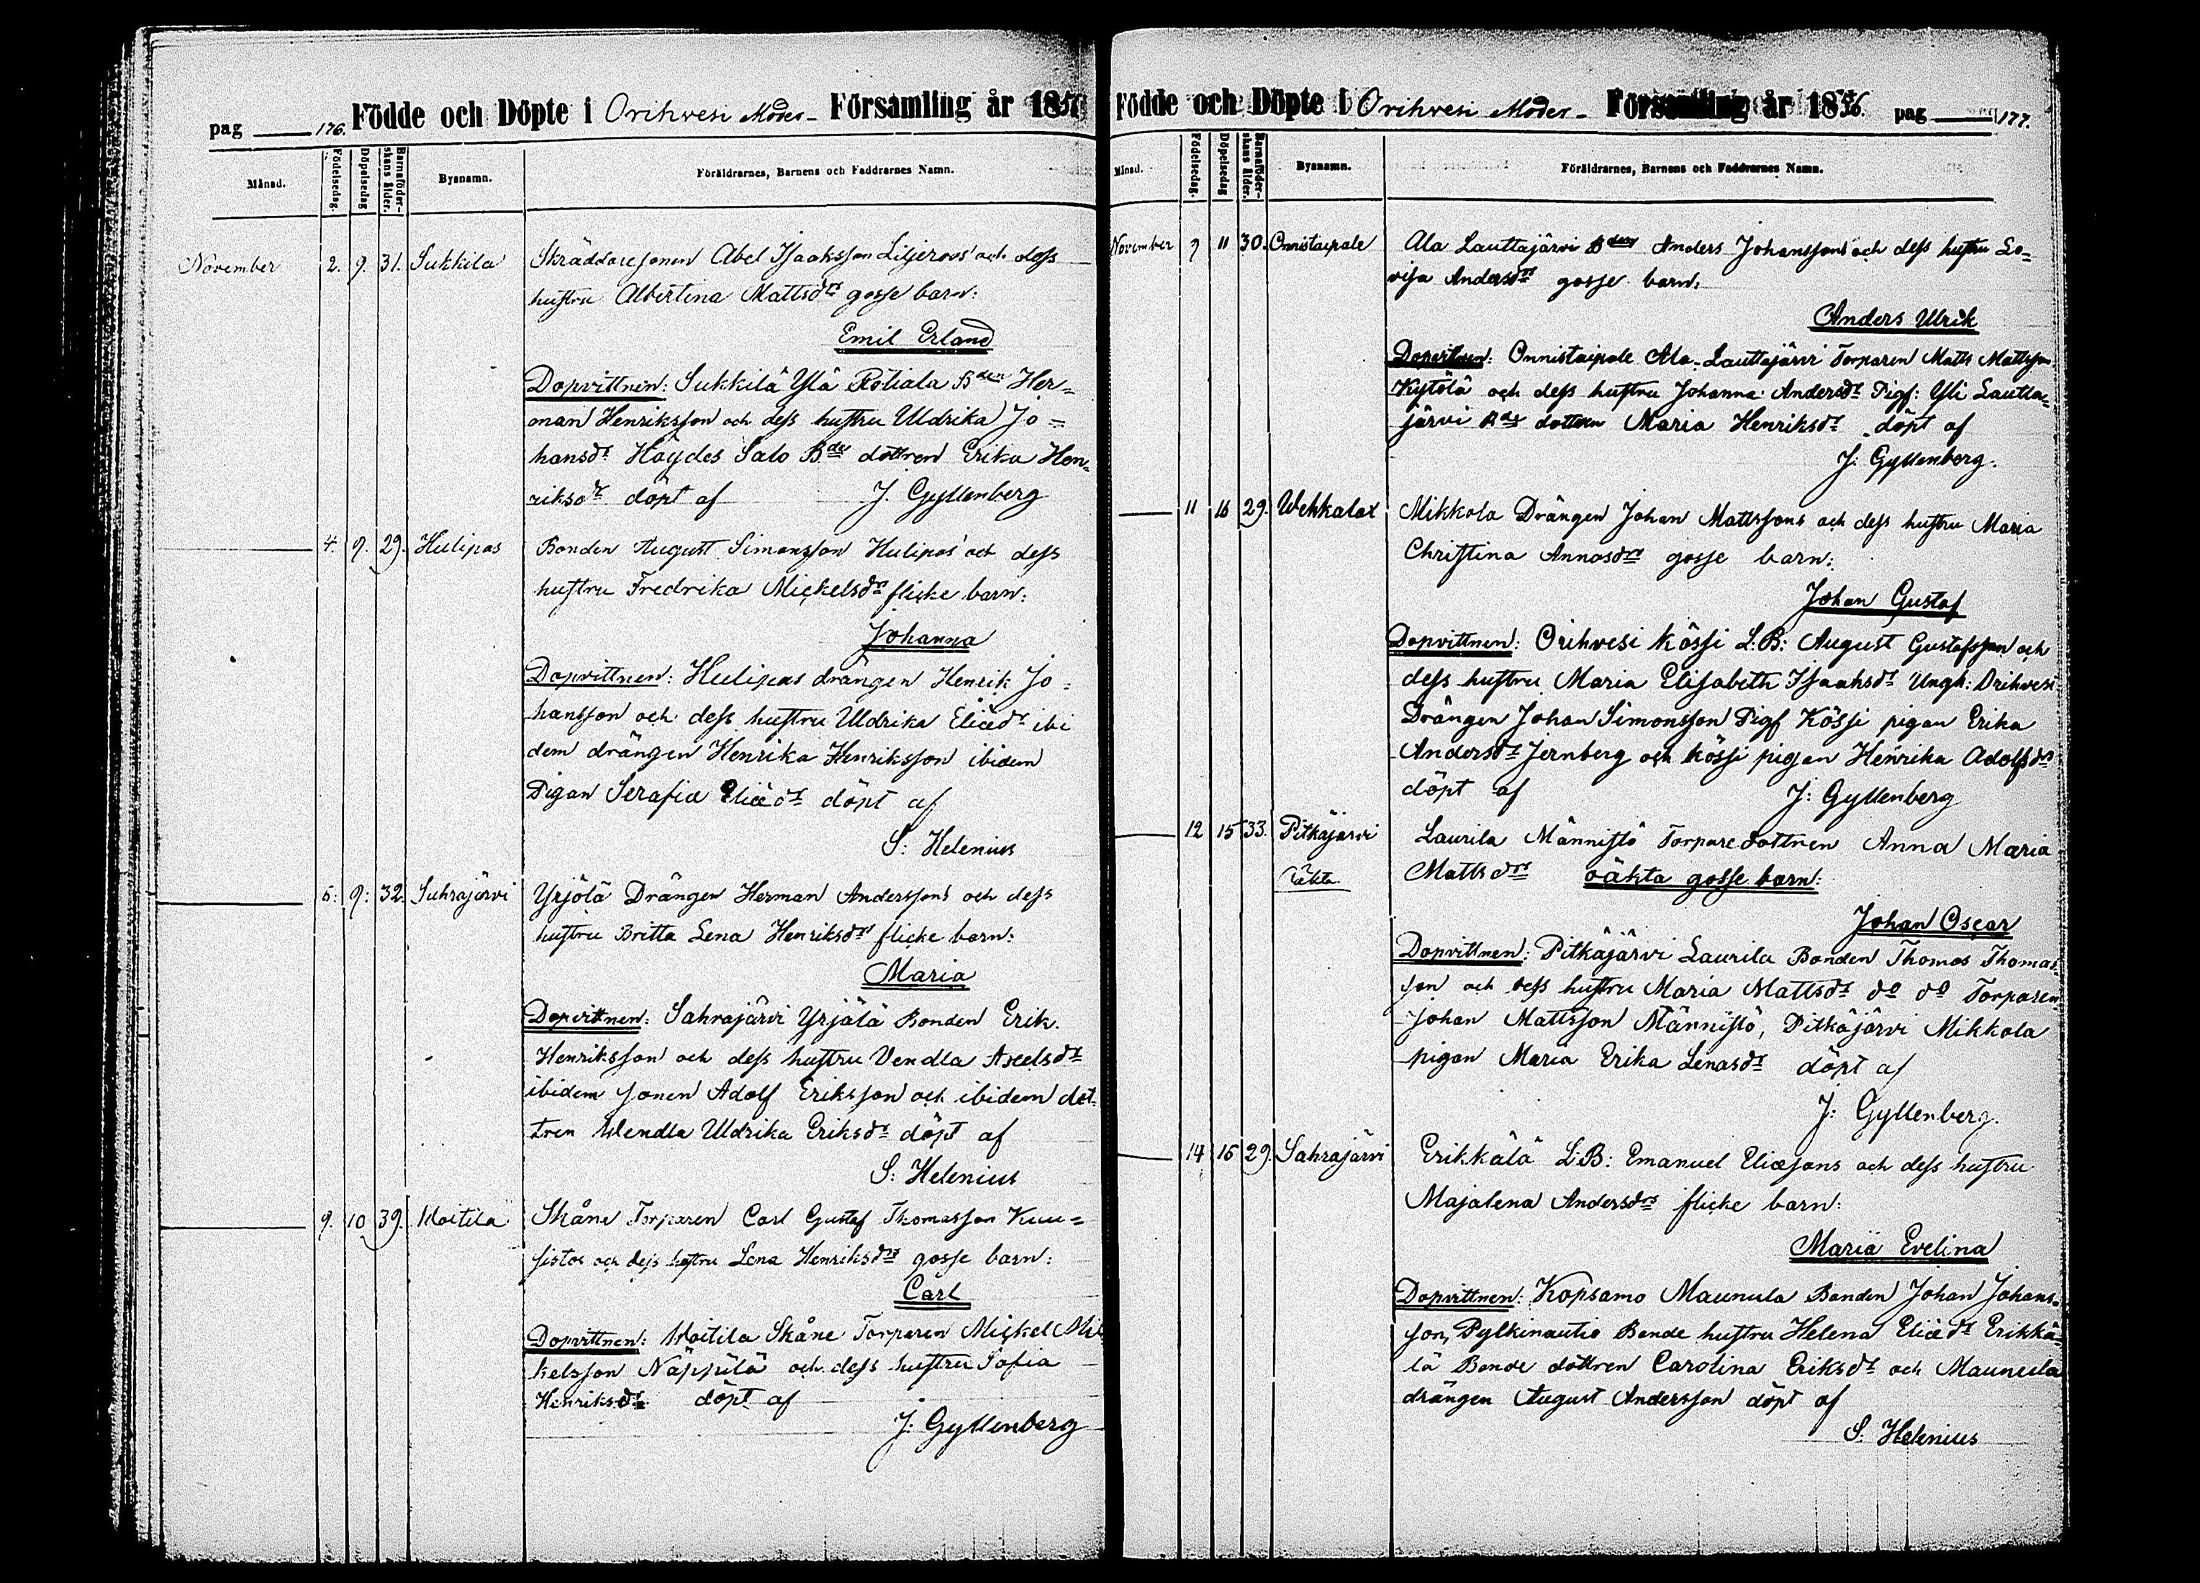 pag 176. Födde och Döpte i Orihvesi Moder- Församling år 18
Månad. Födelsedag. Döpelsedag Barnaföderskans ålder. Bysnamn. Föräldrarnes, Barnens och Faddrarnes Namn.
November 2. 9. 31. Sukkila Skräddaresonen Abel Isaaksson Liljeroos' och dess
hustru Albertina Mattsdrs gosse barn:
Emil Erland
Dopvittnen: Sukkilä Ylä Rötiala Bden Her-
man Henriksson och dess hustru Uldrika Jo-
hansdr Höydes Salo Bde dottren Erika Hen-
riksdr döpt af J. Gyllenberg
4. 9. 29. Hulipas Bonden August Simonsson Hulipas' och dess
hustru Fredrika Mickelsdrs flicke barn:
Johanna
Dopvittnen: Hulipas drängen Henrik Jo-
hansson och dess hustru Uldrika Eliædr ibi
dem drängen Henrika Henriksson ibidem
Pigan Serafia Eliædr döpt af
S: Helenius
5: 9: 32. Sahrajärvi Yrjölä Drängen Herman Anderssons och dess
hustru Britta Lena Henriksdrs flicke barn:
Maria
Dopvittnen: Sahrajärvi Yrjälä Bonden Erik
Henriksson och dess hustru Vendla Axelsdr
ibidem sonen Adolf Eriksson och ibidem dot-
tren Wendla Uldrika Eriksdr döpt af
S: Helenius
9. 10 39. Koitila Skåne Torparen Carl Gustaf Thomasson Kuu-
sistos och dess hustru Lena Henriksdrs gosse barn:
Carl
Dopvittnen: Koitila Skåne Torparen Mickel Mic
kelsson Näppilä och dess hustru Sofia
Henriksdr döpt af
J: Gyllenberg
Födde och Döpte i Orihvesi Moder- Församling år 1876. pag 177.
Månad. Födelsedag. Döpelsedag Barnaföderskans ålder. Bysnamn. Föräldrarnes, Barnens och Faddrarnes Namn.
November 9 11 30. Onnistaipale Ala Lauttajärvi Bden Anders Johanssons och dess hustru Lo-
visa Andersdrs gosse barn:
Anders Ulrik
Dopvittnen: Onnistaipale Ala-Lauttajärvi Torparen Matts Mattsson
Kytölä och dess hustru Johanna Andersdr Pigf: Yli Lautta-
järvi Bde dottren Maria Henriksdr döpt af
J: Gyllenberg.
11 16 29. Wehkalax Mikkola Drängen Johan Mattssons och dess hustru Maria
Christina Annasdrs gosse barn:
Johan Gustaf
Dopvittnen: Orihvesi Kössi L:B: August Gustafsson och
dess hustru Maria Elisabeth Isaaksdr Ungk: Orihvesi
Drängen Johan Simonsson Pigf Kössi pigan Erika
Andersdr Jernberg och Kössi pigan Henrika Adolfsdr
döpt af J: Gyllenberg
12 15 33. Pitkäjärvi Laurila Männistö Torpare dottren Anna Maria
Oäkta Mattsdrs oäkta gosse barn:
Johan Oscar
Dopvittnen: Pitkäjärvi Laurila Bonden Thomas Thomas-
son och dess hustru Maria Mattsdr do do Torparen
Johan Mattsson Männistö, Pitkäjärvi Mikkola
pigan Maria Erika Lenasdr döpt af
J: Gyllenberg.
14 16 29. Sahrajärvi Erikkälä L:B: Emanuel Eliæsons och dess hustru
Majalena Andersdrs flicke barn:
Maria Evelina
Dopvittnen: Kopsamo Maunula Bonden Johan Johans-
son, Pylkinautio Bonde hustru Helena Eliædr Erikkä-
lä Bonde dottren Carolina Eriksdr och Maunula
drängen August Andersson döpt af
S. Helenius